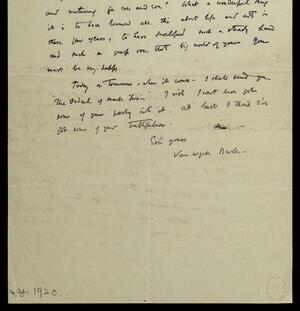 and maturing for ever and ever! What a wonderful thing
it is to have learned all this about life and art in
these few years, to have such a steady hand
and such a great big world of yours. You
must be very happy.
Today or tomorrow, when it comes, I shall send you
"The Ordeal of Mark Twain". I wish I could have got
some of your into it. At least I think I've
got some of your truthfulness.
Ever yours
Van Wyck Brooks
1920.